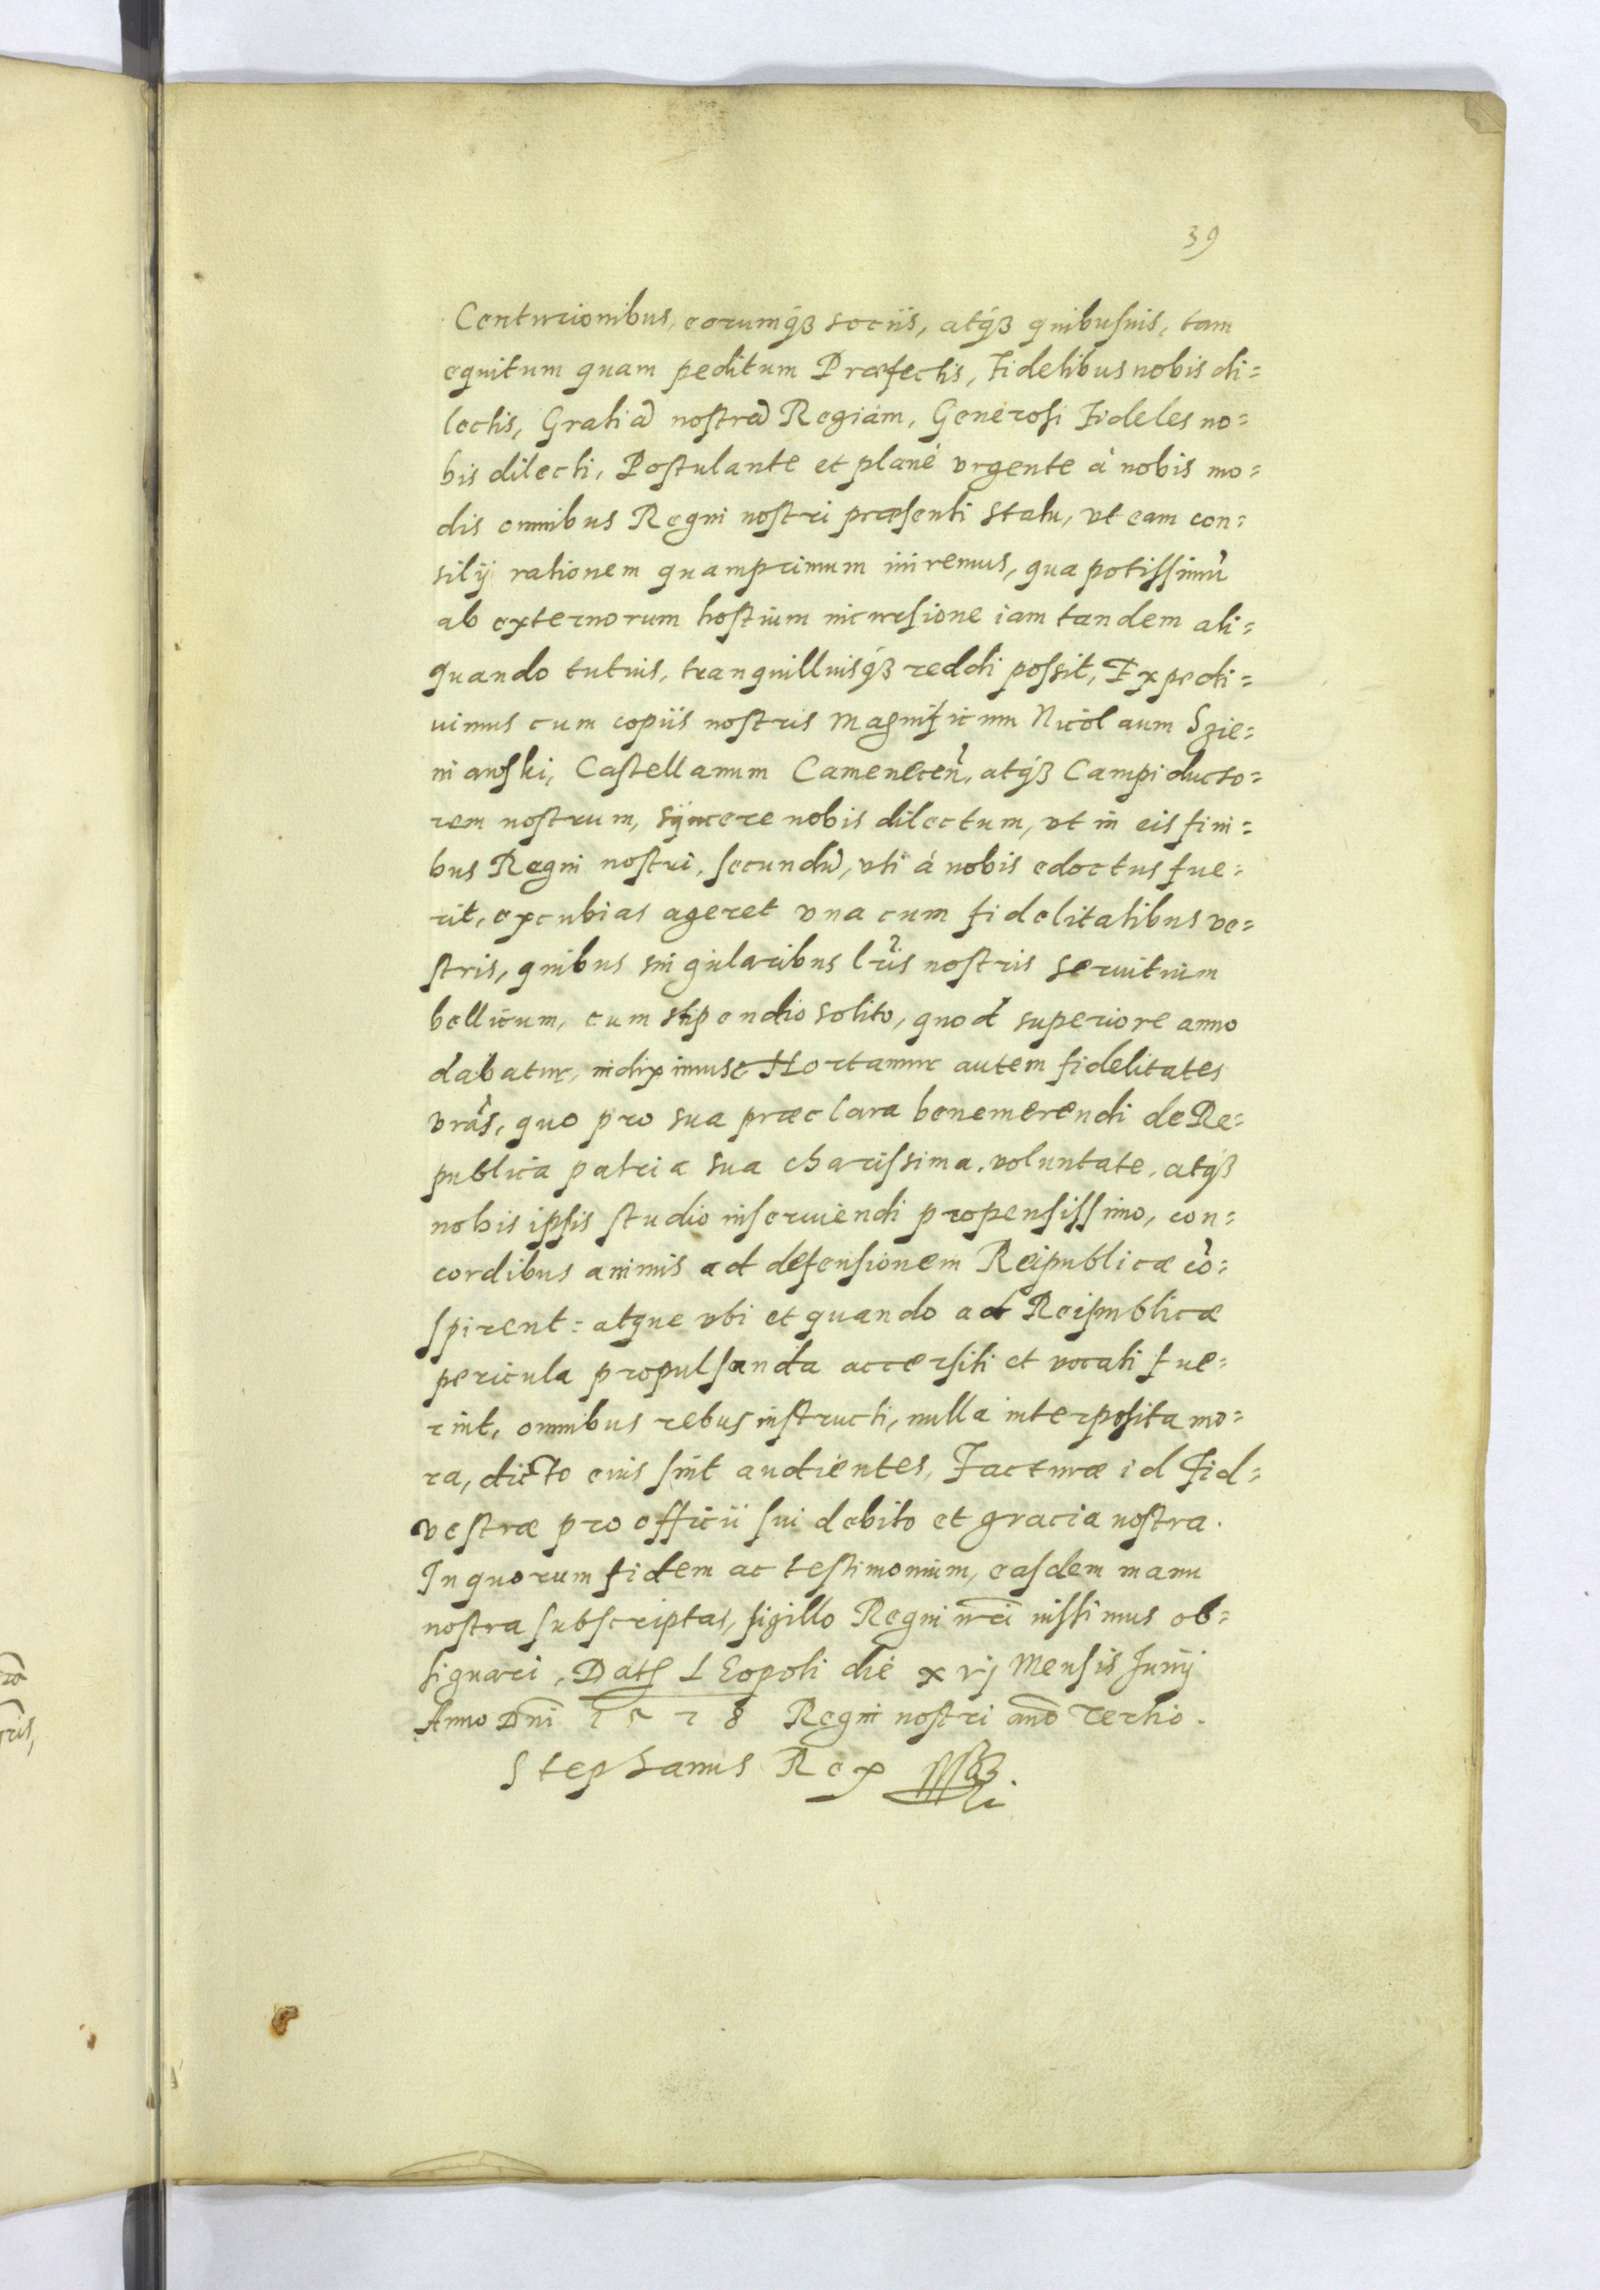 39
Centurionibus, eorumqꝫ sociis, atqꝫ quibusuis, tam
equitum quam peditum Præfectis, Fidelibus nobis di=
lectis, Gratiã nostrã Regiam, Generosi Fideles no=
bis dilecti, Postulante et planè vrgente à nobis mo=
dis omnibus Regni nostri præsenti statu, vt eam con=
silij rationem quamprimum iniremus, qua potissimũ
ab externorum hostium incursione iam tandem ali=
quando tutius, tranquilliusqꝫ reddi possit, Expedi=
uimus cum copiis nostris Magnificum Nicolaum Szie=
niauski, Castellanum Cameneceñ, atqꝫ Campiducto=
rem nostrum, syncere nobis dilectum, vt in eis fini=
bus Regni nostri, secundũ, vti à nobis edoctus fue=
rit, excubias ageret vna cum fidelitatibus ve=
stris, quibus singularibus lris nostris seruitium
bellicum, cum stipendio solito, quod superiore anno
dabatur, indiximus. Hortamur autem fidelitates
vras, quo pro sua præclara benemerendi de Re=
publica patria sua charissima, voluntate, atqꝫ
nobis ipsis studio inseruiendi propensissimo, con=
cordibus animis ad defensionem Reipublicæ cõ=
spirent: atque vbi et quando ad Reipublicæ
pericula propulsanda accersiti et vocati fue=
rint, omnibus rebus instructi, nulla interposita mo=
ra, dicto eius sint audientes, Facturæ id Fid=
vestræ pro officii sui debito et gracia nostra.
In quorum fidem ac testimonium, easdem manu
nostra subscriptas, sigillo Regni nri iussimus ob=
signari, Dat Leopoli die xvj Mensis Junij
Anno Dni 1578 Regni nostri ano Tertio.
Stephanus Rex